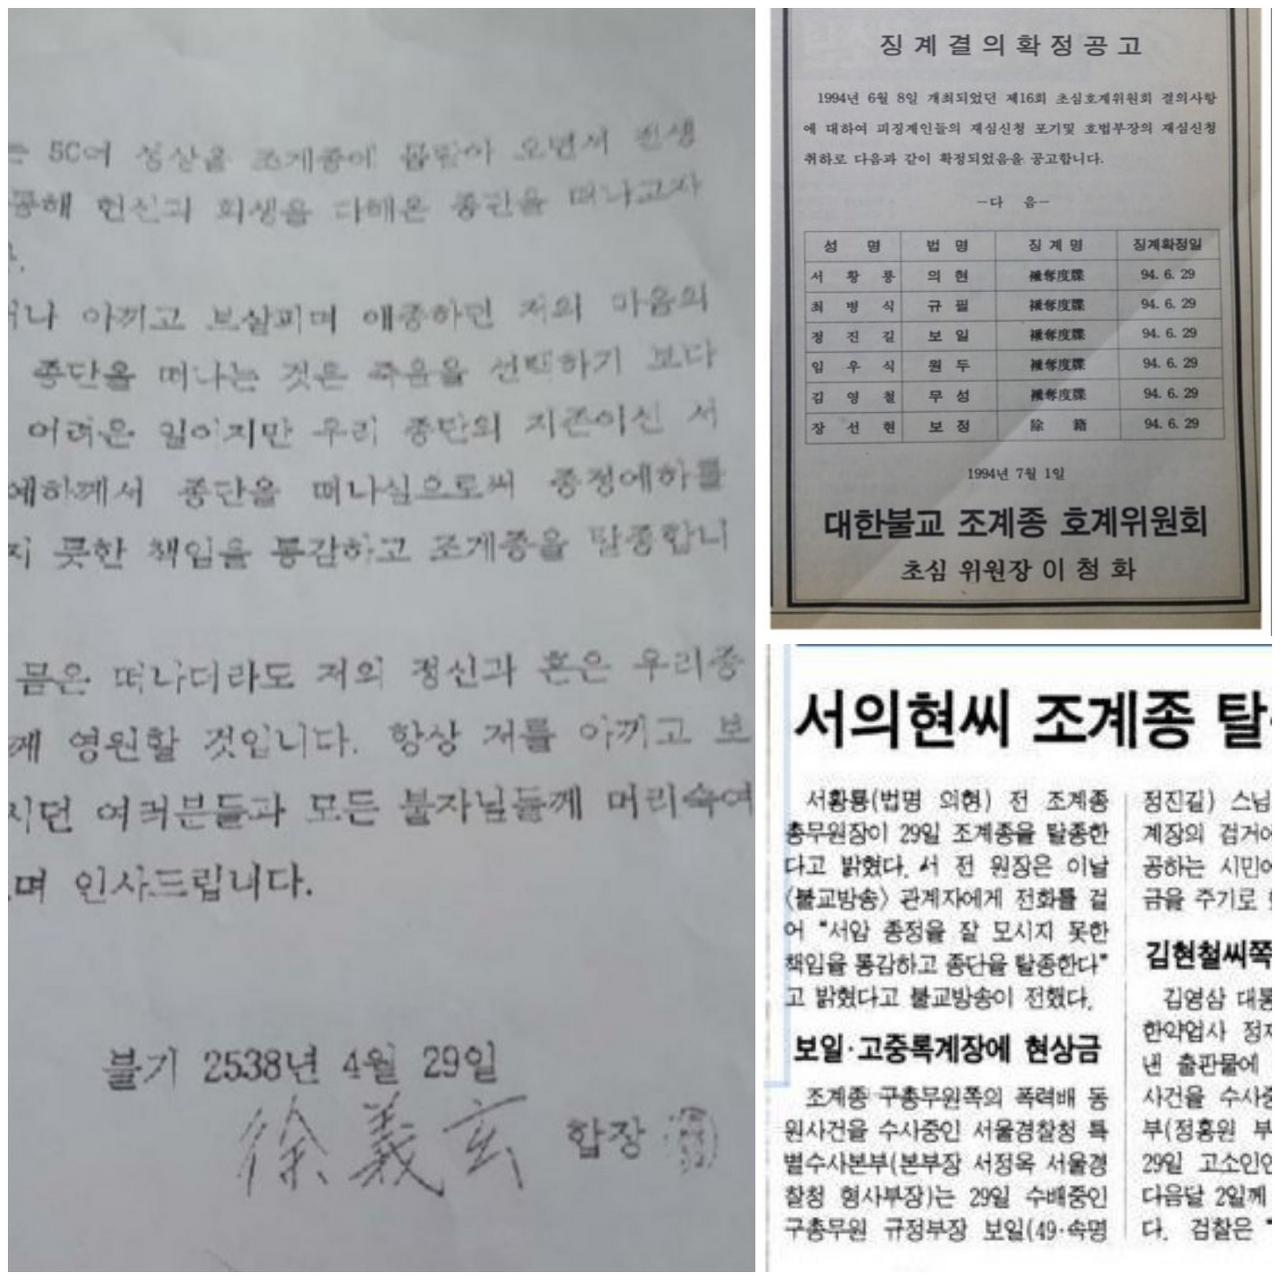 는 50여 성상을 조계종에 몸담아 오면서 전생
통해 헌신과 희생을 다해온 종단을 떠나고자
다.
나 아끼고 보살피며 애종하던 저의 마음의
종단을 떠나는 것은 죽음을 선택하기 보다
어려운 일이지만 우리 종단의 지존이신 서
예하께서 종단을 떠나심으로써 종정예하를
지 못한 책임을 통감하고 조계종을 탈종합니
몸은 떠나더라도 저의 정신과 혼은 우리종
께 영원할 것입니다. 항상 저를 아끼고 보
시던 여러분들과 모든 불자님들께 머리숙여
며 인사드립니다.
불기 2538년 4월 29일
徐義玄 합장
징계결의확정공고
1994년 6월 8일 개최되었던 제16회 초심호계위원회 결의사항
에 대하여 피징계인들의 재심신청 포기및 호법부장의 재심신청
취하로 다음과 같이 확정되었음을 공고합니다.
-다 음-
성 명 법 명 징 계 명 징계확정일
서 황 룡 의 현 褫奪度牒 94. 6. 29
최 병 식 규 필 褫奪度牒 94. 6. 29
정 진 길 보 일 褫奪度牒 94. 6. 29
임 우 식 원 두 褫奪度牒 94. 6. 29
김 영 철 무 성 褫奪度牒 94. 6. 29
장 선 현 보 정 除 籍 94. 6. 29
1994년 7월 1일
대한불교 조계종 호계위원회
초심 위원장 이 청 화
서의현씨 조계종 탈
서황룡(법명 의현) 전 조계종
총무원장이 29일 조계종을 탈종한
다고 밝혔다. 서 전 원장은 이날
〈불교방송〉 관계자에게 전화를 걸
어 “서암 종정을 잘 모시지 못한
책임을 통감하고 종단을 탈종한다”
고 밝혔다고 불교방송이 전했다.
보일·고중록계장에 현상금
조계종 구총무원쪽의 폭력배 동
원사건을 수사중인 서울경찰청 특
별수사본부(본부장 서정옥 서울경
찰청 형사부장)는 29일 수배중인
구총무원 규정부장 보일(49·속명
정진길) 스님
계장의 검거에
공하는 시민에
금을 주기로
김현철씨쪽
김영삼 대통
한약업사 정재
낸 출판물에
사건을 수사중
부(정홍원 부
29일 고소인인
다음달 2일께
다. 검찰은 “